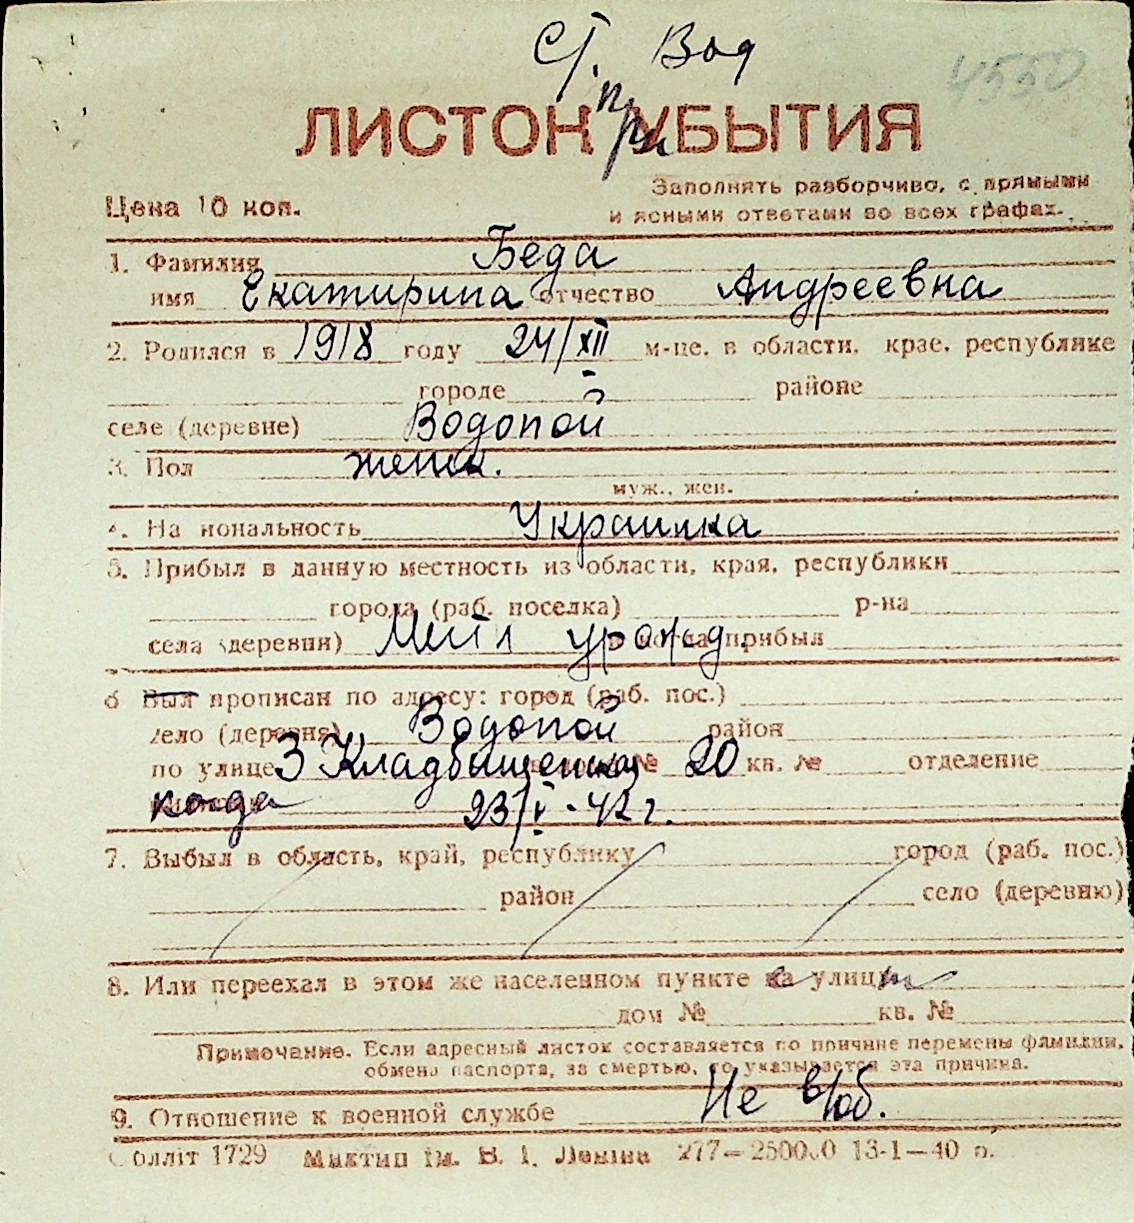 Ст. Вод
4550
при
ЛИСТОК УБЫТИЯ
Цена 10 коп.
Заполнять разборчиво, с прямыми
и ясными ответами во всех графах.
1. Фамилия Беда
имя Екатирина отчество Андреевна
2. Родился в 1918 году 24/XII м-це, в области, крае, республике
городе районе
селе (деревне) Водопой
3. Пол женск.
муж., жен.
4. На иональность Украинка
5. Прибыл в данную местность из области, края, республики
города (раб. поселка) р-на
села (деревни) Мест урожд. прибыл
6 Был прописан по адресу: город (раб. пос.)
село (деревня) Водопой район
по улице 3 Кладбищенская № 20 кв. № отделение
когда 23/V-42 г.
7. Выбыл в область, край, республику город (раб. пос.)
район село (деревню)
8. Или переехал в этом же населенном пункте с улицы
дом № кв. №
Примечание. Если адресный листок составляется по причине перемены фамилии,
обмена паспорта, за смертью, то указывается эта причина.
9. Отношение к военной службе Не в/об.
Облліт 1729 Миктип ім. В. І. Леніна 277—250000 13-1—40 р.